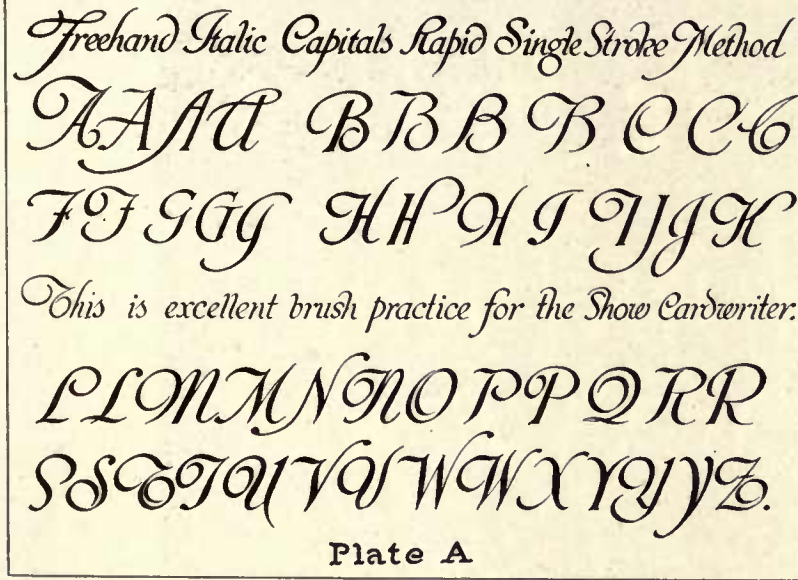 Freehand Italic Capitals Rapid Single Stroke Method
A A A A B B B B C C C
F F G G G H H H I I J J K
This is excellent brush practice for the Show Cardwriter.
L L M M N N O P P Q R R
S S T T U V V W W X Y Y Y Z.
Plate A